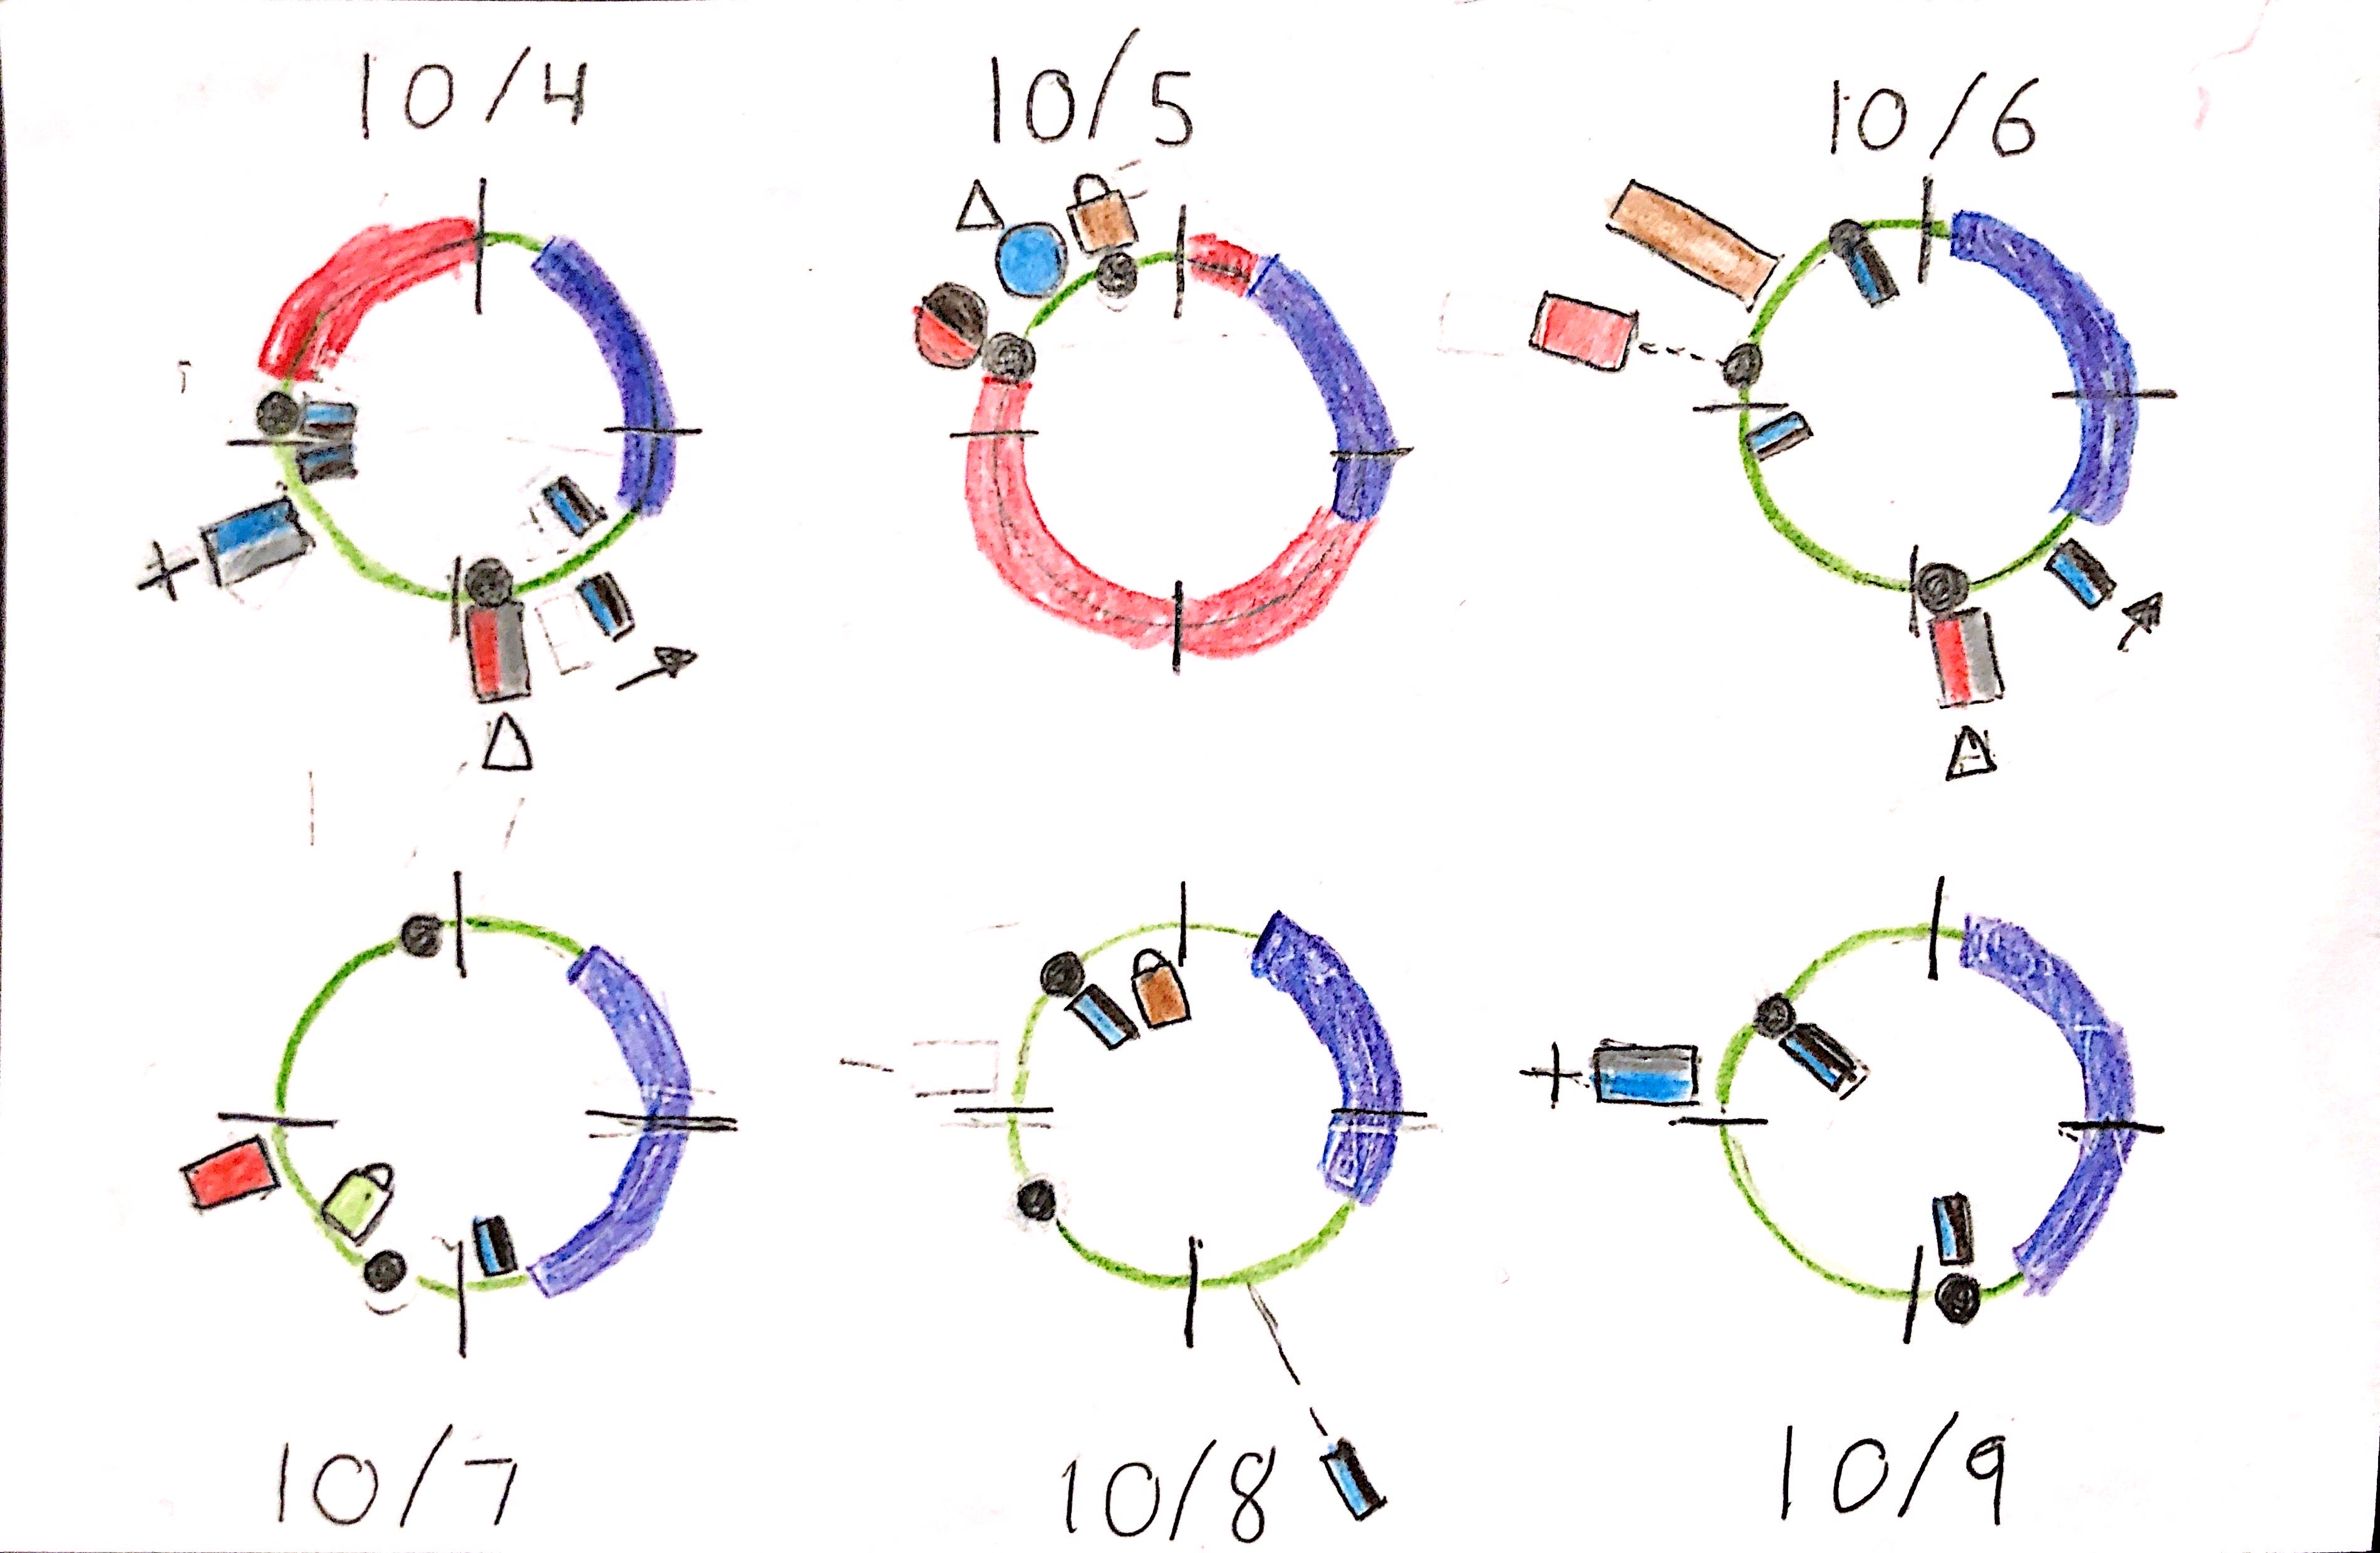 10/4
10/5
10/6
10/7
10/8
10/9